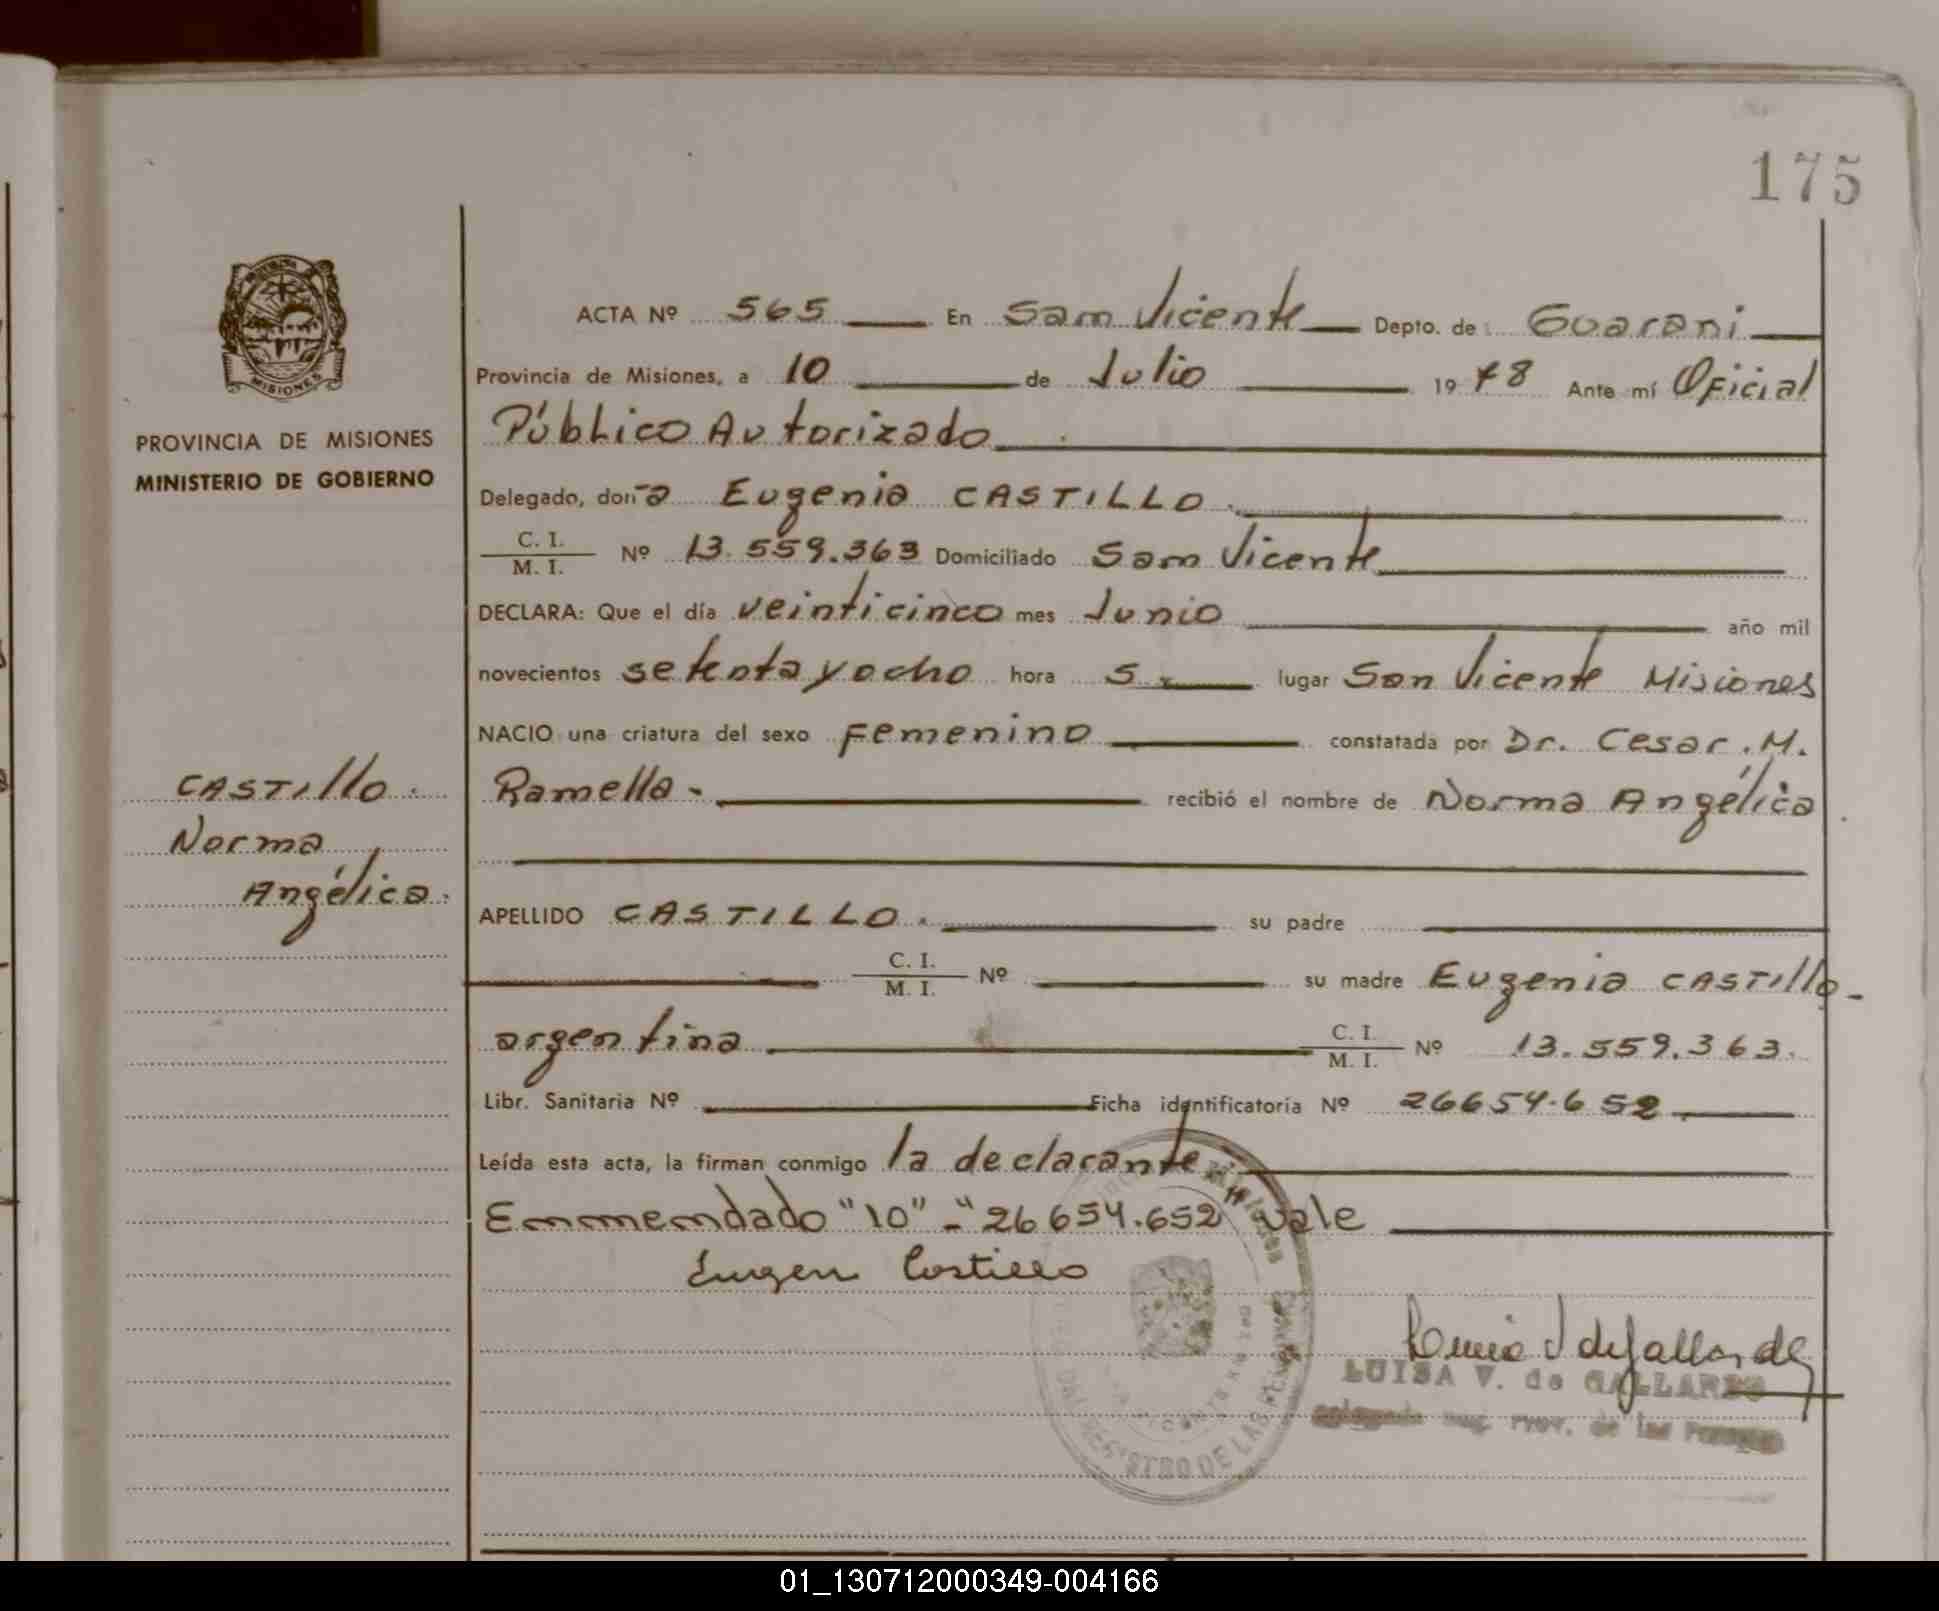 175
MISIONES
PROVINCIA DE MISIONES
MINISTERIO DE GOBIERNO
CASTILLO.
Norma
Angélica.
ACTA Nº 565 En San Vicente Depto. de Guarani
Provincia de Misiones, a 10 de Julio 1978 Ante mí Oficial
Público Autorizado
Delegado, doña Eugenia CASTILLO.
C. I. / M. I. Nº 13.559.363 Domiciliado San Vicente
DECLARA: Que el día veinticinco mes Junio año mil
novecientos setenta y ocho hora 5 lugar San Vicente Misiones
NACIO una criatura del sexo Femenino constatada por Dr. Cesar. M.
Ramella- recibió el nombre de Norma Angélica
APELLIDO CASTILLO. su padre
C. I. / M. I. Nº su madre Eugenia CASTILLO-
argentina C. I. / M. I. Nº 13.559.363.
Libr. Sanitaria Nº Ficha identificatoria Nº 26654.652
Leída esta acta, la firman conmigo la declarante
Enmendado "10" - "26654.652" vale
Eugen Castillo
LUISA V. de GALLARDO
Prov. de las
REGISTRO DE LAS
01_130712000349-004166